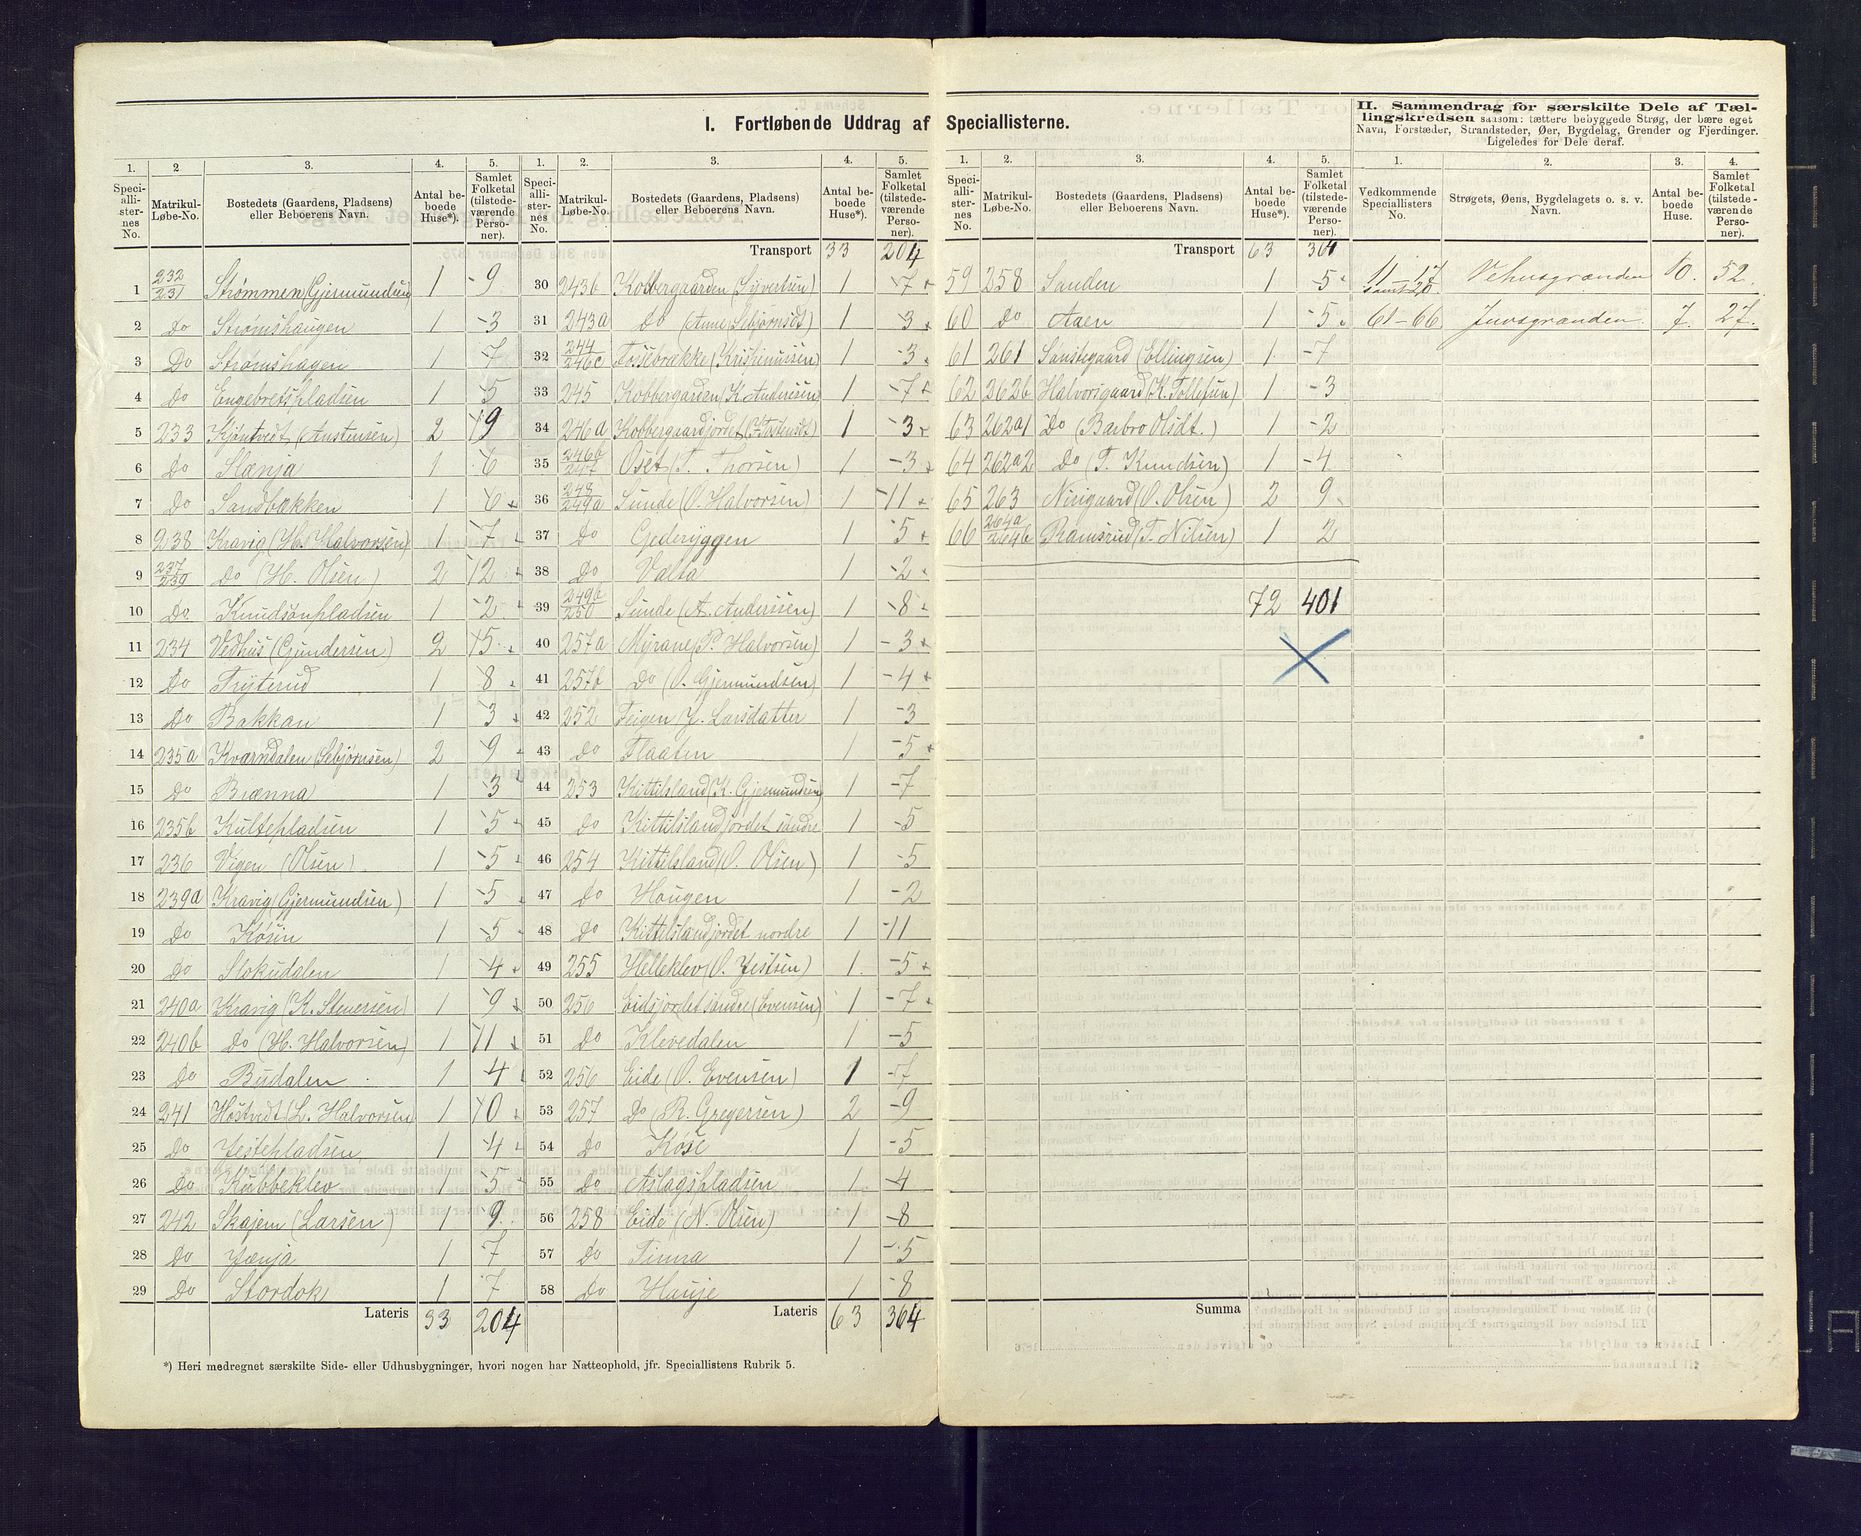 I. Fortløbende Uddrag af Speciallisterne.
II. Sammendrag for særskilte Dele af Tæl-
lingskredsen saasom: tættere bebyggede Strøg, der bære eget
Navn, Forstæder, Strandsteder, Øer, Bygdelag, Grender og Fjerdinger.
Ligeledes for Dele deraf.
1. 2 3. 4. 5.
Speci-alli-ster-nes No. Matrikul-Løbe-No. Bostedets (Gaardens, Pladsens) eller Beboerens Navn. Antal be-boede Huse*). Samlet Folketal (tilstede-værende Perso-ner).
1 232/231 Strømmen (Gjermundsen) 1 9
2 Do Strømshaugen 1 3
3 Do Strømshagen 1 7
4 Do Engebretspladsen 1 5
5 233 Kjøntvedt (Austensen) 2 19
6 Do Slænja 1 6
7 Do Sandbækken 1 6
8 238 Kravig (H. Halvorsen) 1 7
9 237/239 Do (H. Olsen) 2 12
10 Do Knudsønpladsen 1 2
11 234 Vedhus (Gundersen) 2 15
12 Do Tryterud 1 8
13 Do Bakkan 1 3
14 235a Kværndalen (Sebjørnsen) 2 9
15 Do Brænna 1 3
16 235b Kultepladsen 1 5
17 236 Vigen (Olsen) 1 5
18 239a Kravig (Gjermundsen) 1 5
19 Do Kosin 1 5
20 Do Stokudalen 1 4
21 240a Kravig (K. Stenersen) 1 9
22 240b Do (H. Halvorsen) 1 11
23 Do Budalen 1 4
24 241 Høstvedt (L. Halvorsen) 1 10
25 Do Jestepladsen 1 4
26 Do Kubbeklev 1 5
27 242 Skajem (Larsen) 1 9
28 Do Jænja 1 7
29 Do Stordok 1 7
Lateris 33 204
1. 2. 3. 4. 5.
Speci-alli-ster-nes No. Matrikul-Løbe-No. Bostedets (Gaardens, Pladsens) eller Beboerens Navn. Antal be-boede Huse*). Samlet Folketal (tilstede-værende Perso-ner).
Transport 33 204
30 243b Kobbergaarden (Sivertsen) 1 7
31 243a Do (Anne Sebjørnsdt) 1 3
32 244/246c Fosebrække (Kristiansen) 1 3
33 245 Kobbergarden (K. Andersen) 1 7
34 246a Kobbergaardjordet 1 3
35 246b/247 Oset (T. Thorsen) 1 3
36 248/249a Sunde (O. Halvorsen) 1 11
37 Do Gjederyggen 1 5
38 Do Valta 1 2
39 249b/250 Sunde (A. Anderssen) 1 8
40 257a Myrane (P. Halvorsen) 1 3
41 257b Do (O. Gjermundsen) 1 4
42 252 Feigen J. Larsdatter 1 3
43 Do Flaaten 1 5
44 253 Kittilsland (K. Gjermundsen) 1 7
45 Do Kittilslandjordet søndre 1 5
46 254 Kittilsland (O. Olsen) 1 5
47 Do Haugen 1 2
48 Do Kittilslandjordet nordre 1 11
49 255 Helleklev (O. Jestsen) 1 5
50 256 Eidsjordet søndre (Evensen) 1 7
51 Do Klevedalen 1 5
52 256 Eide (O. Evensen) 1 7
53 257 Do (R. Gregersen) 2 9
54 Do Kose 1 5
55 Do Aslagspladsen 1 4
56 258 Eide (N. Olsen) 1 8
57 Do Tinna 1 5
58 Do Hauje 1 8
Lateris 63 364
*) Heri medregnet særskilte Side- eller Udhusbygninger, hvori nogen har Natteophold, jfr. Speciallistens Rubrik 5.
1. 2. 3. 4. 5.
Speci-alli-ster-nes No. Matrikul-Løbe-No. Bostedets (Gaardens, Pladsens) eller Beboerens Navn. Antal be-boede Huse*). Samlet Folketal (tilstede-værende Perso-ner).
Transport 63 364
59 258 Sanden 1 5
60 Do Aaen 1 5
61 261 Sønstegaard (Ellingsen) 1 7
62 262b Halvorsgaard (K. Tollefsen) 1 3
63 262a1 Do (Barbro Olsdt.) 1 2
64 262a2 Do (T. Knudsen) 1 4
65 263 Nirigaard (O. Olsen) 2 9
66 264a/264b Ramsrud (T. Nilsen) 1 2
72 401
Summa
1. 2. 3. 4.
Vedkommende Speciallisters No. Strøgets, Øens, Bygdelagets o. s. v. Navn. Antal be-boede Huse. Samlet Folketal (tilstede-værende Perso-ner).
11–17 samt 20 Vehusgrænden 10. 52.
61–66 Juvsgrænden 7. 27.